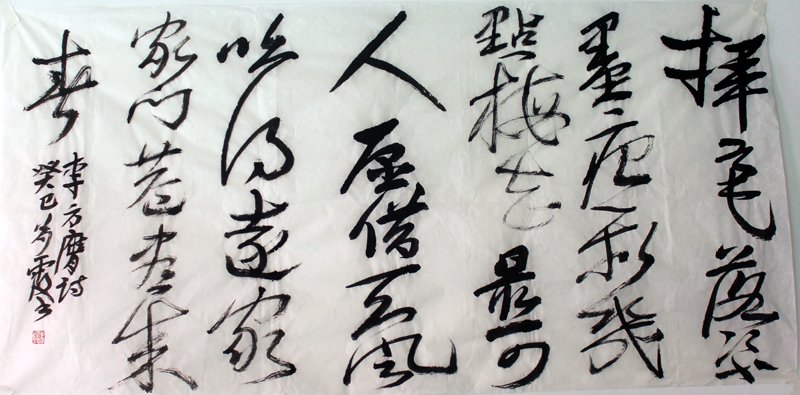 揮毫落紙
墨痕新幾
點梅花最可
人愿借天風
吹得遠家
家門巷盡成
春
李方膺詩
癸巳 霞书